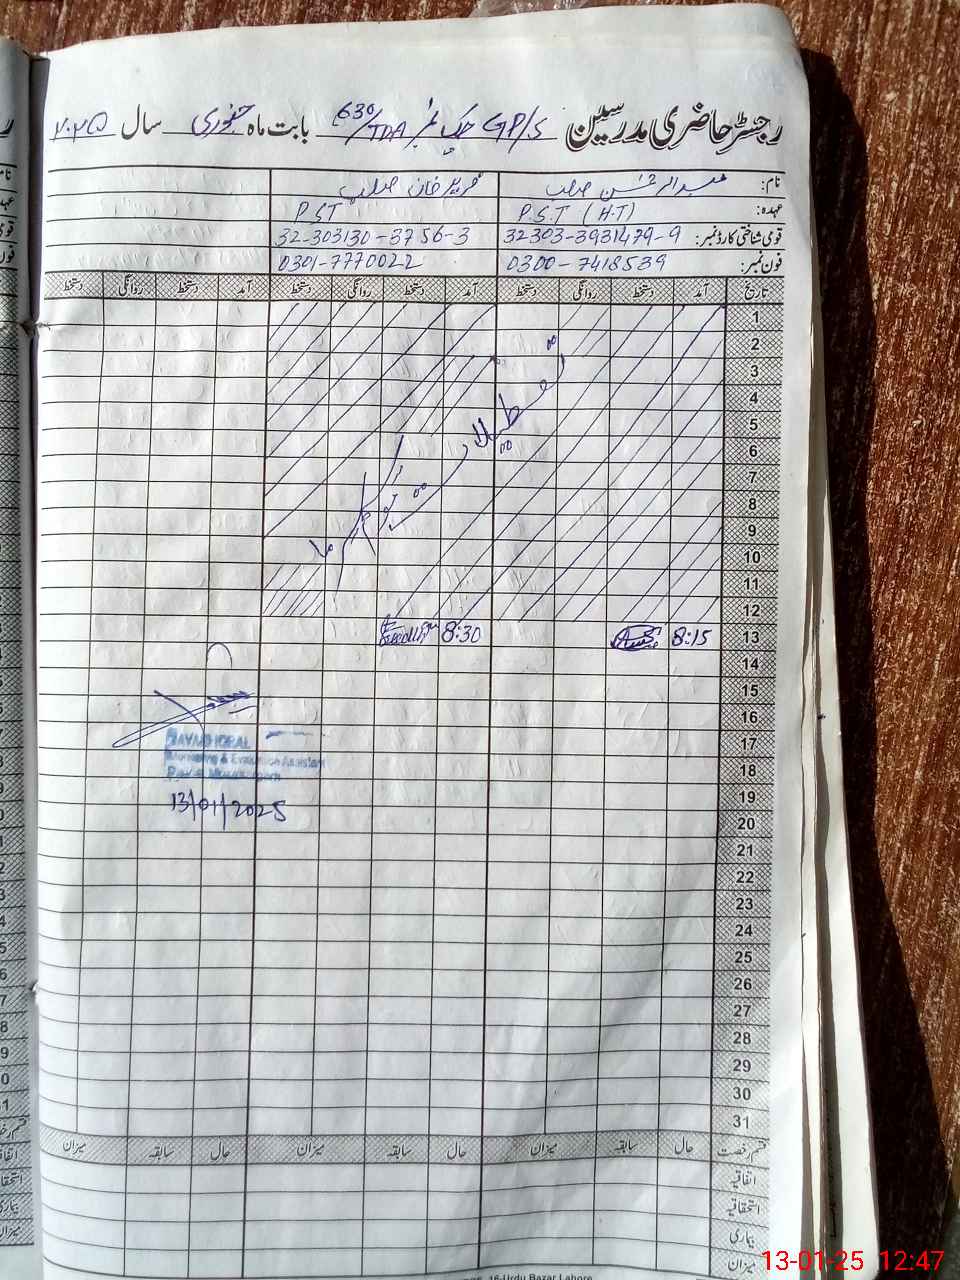 رجسٹر حاضری مدرسین GP/S چک نمبر 630/TDA بابت ماہ جنوری سال ۲۰۲۵
نام: عبدالرحمٰن صاحب فرید خان صاحب
عہدہ: P.S.T (H.T) PST
قومی شناختی کارڈ نمبر: 32303-3931479-9 32-303130-3756-3
فون نمبر: 0300-7418539 0301-7770022
تاریخ آمد دستخط روانگی دستخط آمد دستخط روانگی دستخط آمد دستخط روانگی دستخط
1
2
3
4
5
6
7
8
9
10
11
12
تعطیلات موسم سرما
13 8:15 8:30
14
15
16
17
18
19
20
21
22
23
24
25
26
27
28
29
30
31
Monitoring & Evaluation Assistant
13/01/2025
قسم رخصت حال سابقہ میزان حال سابقہ میزان حال سابقہ میزان
اتفاقیہ
استحقاقیہ
بیماری
میزان
16-Urdu Bazar Lahore
13-01-25 12:47